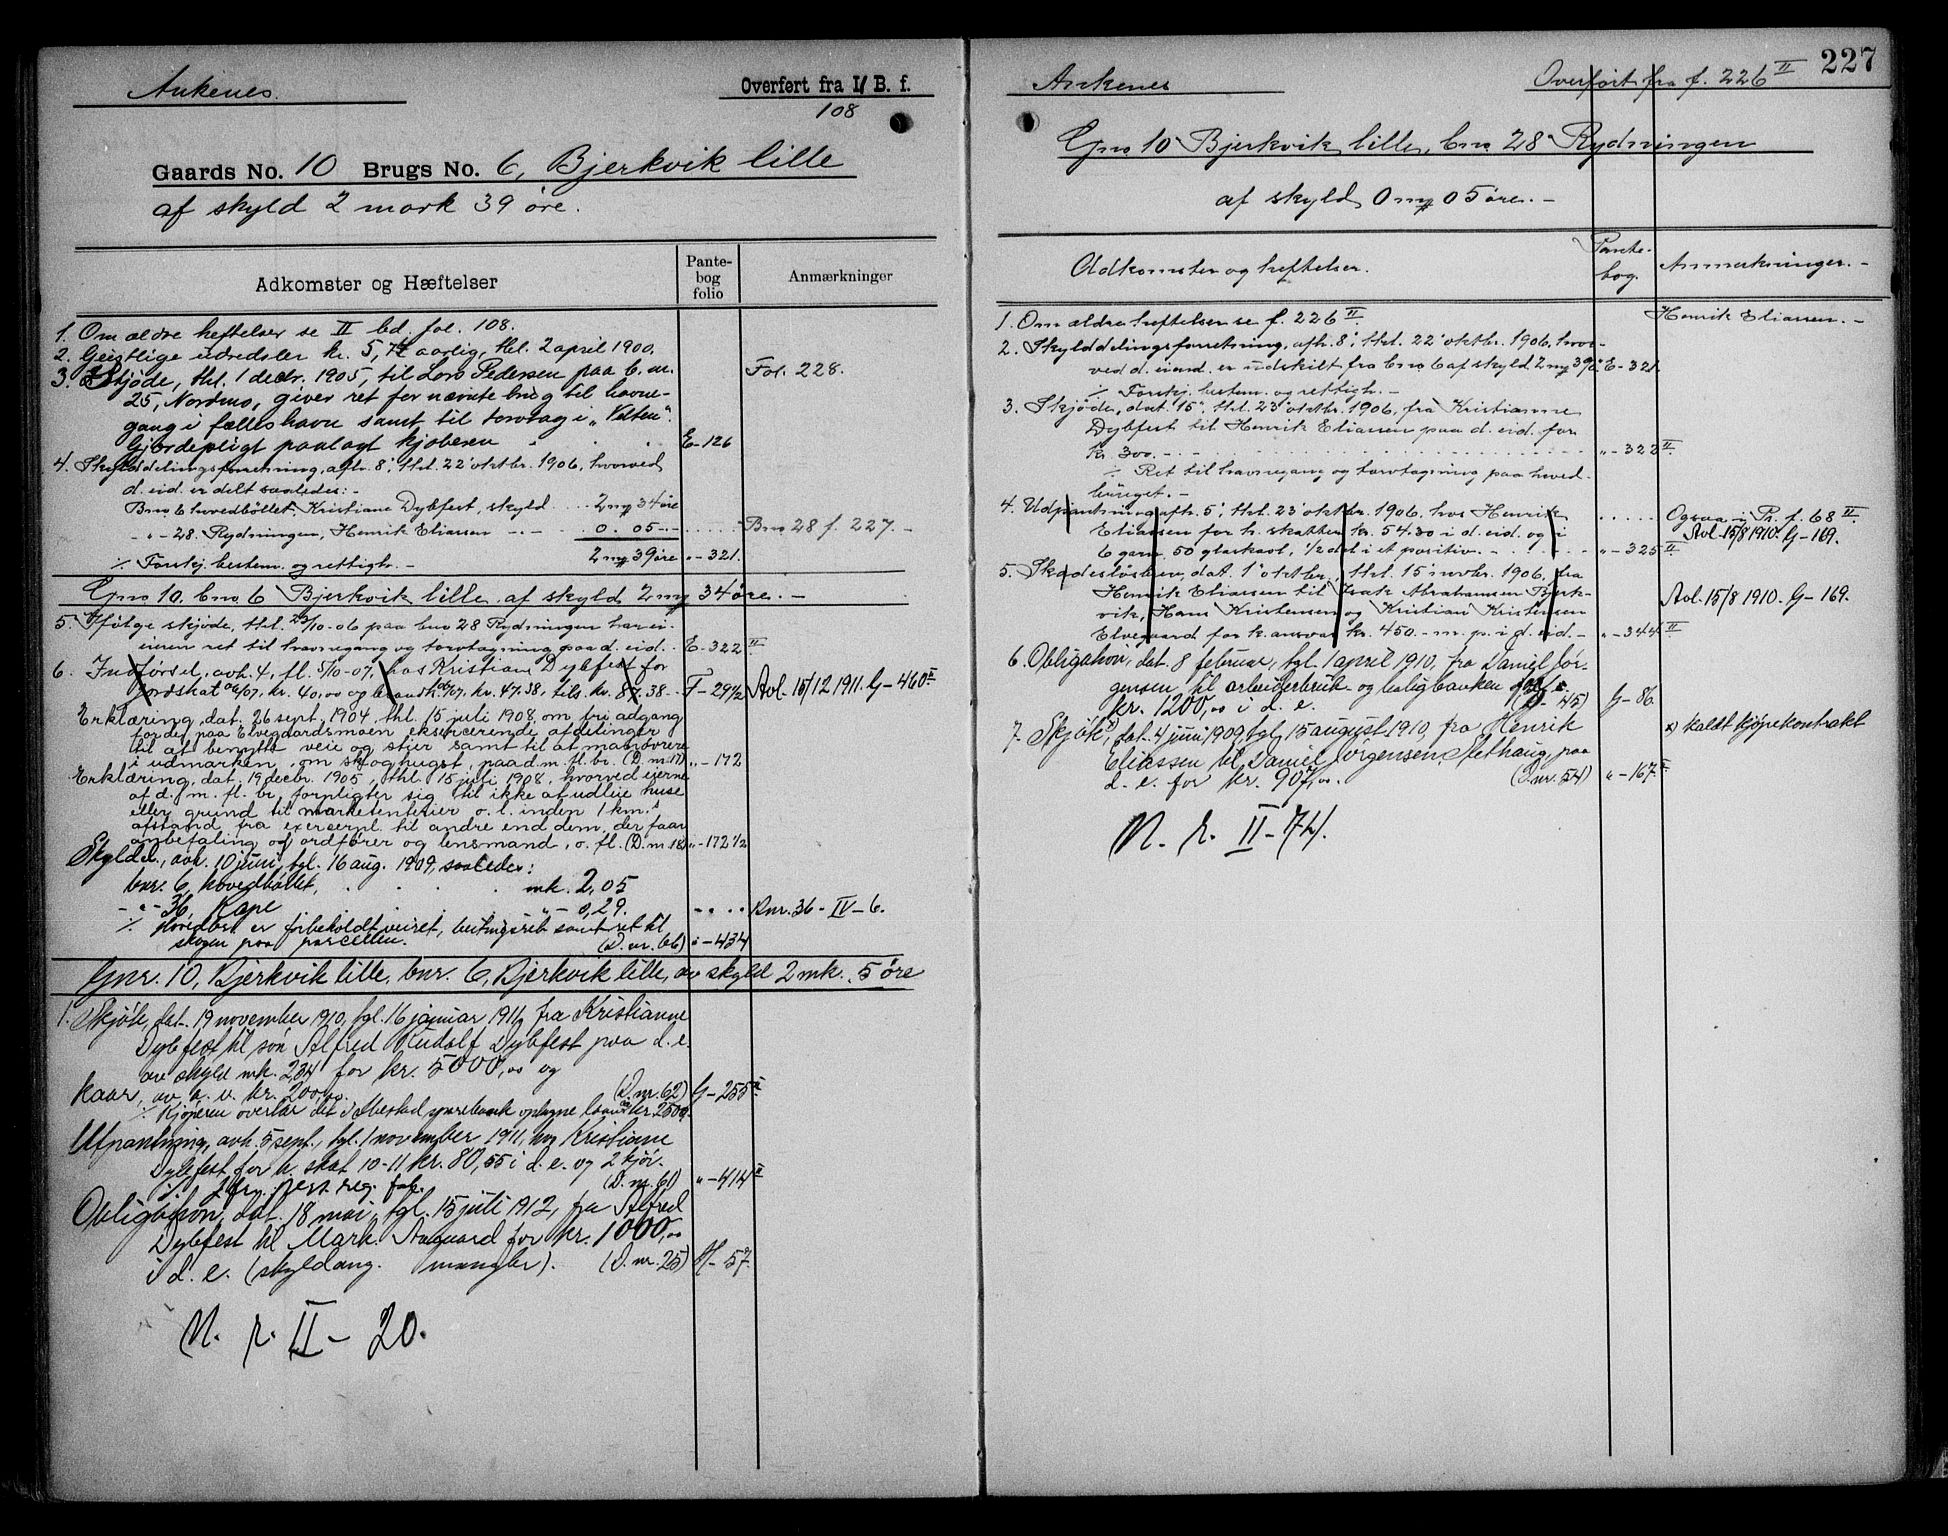 Ankenes.
Overført fra I/ B. f.
108
Gaards No. 10 Brugs No. 6, Bjerkvik lille
af skyld 2 mark 39 øre.
Adkomster og Hæftelser
Pante-
bog
folio
Anmærkninger
1. Om ældre heftelser se II bd. fol. 108.
2. Geistlige udredsler kr. 5,74 aarlig, thl. 2 april 1900.
3. Skjøde, thl. 1 decbr. 1905, til Lars Pedersen paa b. nr. Fol. 228.
25, Nordmo, giver ret for nævnte brug til havne-
gang i fælleshavn samt til torvtag i "Valten".
Gjerdepligt paalagt kjøberen E-126
4. Skylddelingsforretning, afh. 8', thl. 22' oktbr. 1906, hvorved
d. eid. er delt saaledes: -
Bno 6 hovedbøllet, Kristiane Dybfest, skyld ... 2 my 34 øre
-"- 28 Rydningen, Henrik Eliassen -"- 0. 05 -"- ..... Bno 28 f. 227. -
2 my 39 øre "-321.
% Forskj. bestem. og rettigh. -
Gno 10. bno 6 Bjerkvik lille af skyld 2 my 34 øre. -
5. Ifølge skjøde, thl. 23/10-06 paa bno 28 Rydningen har ei-
eren ret til havnegang og torvtagning paa d. eid. .. E-322 II
6. Indførsel, avh. 4, tl. 5/10-07, hos Kristian Dybfest for
jordskat 06/07, kr. 40,00 og brandk. 06/07, kr. 47.38, tils. kr. 87.38 .. F-291/2 Avl. 15/12 1911. G-460 II
Erklæring, dat. 26 sept. 1904, thl. 15 juli 1908, om fri adgang
for de paa Elvegaardsmoen eksercerende afdelinger
til at benytte veie og stier samt til at manøvrere
i udmarken, om skoghugst, paa d. m. fl. br. (D. nr. 17) "-172
Erklæring, dat. 19 decbr. 1905, thl. 15 juli 1908, hvorved eierne
af d. g. m. fl. br. forpligter sig til ikke at udleie huse
eller grund til marketenterier o. l. inden 1 km.s
afstand fra exercerpl. til andre end dem, der faar
anbefaling af ordfører og lensmand, o. fl. (D. nr. 18) "-172 1/2
Skyldel., avh. 10 juni, tgl. 16 aug. 1909, saaledes:
bnr. 6, hovedbøllet, mk. 2,05
-"- 36, Kape "- 0,29. .... Bnr. 36-IV-6.
% Hovedbøl er forbeholdt veiret, beitingsret samt ret til
skogen paa parcellen. (D. nr. 66) "-434
Gnr. 10, Bjerkvik lille, bnr. 6, Bjerkvik lille, av skyld 2 mk. 5 øre
1. Skjøte, dat. 19 november 1910, tgl. 16 januar 1911, fra Kristianne
Dybfest til søn Alfred Rudolf Dybfest paa d. e.
av skyld mk. 2,34 for kr. 5000,00 og
kaar, av 5. a. v. kr. 200,00. (D. nr. 62) G-255 II
% Kjøperen overtar det i Ibestad sparebank optagne laan kr. 2500.
Utpantning, avh. 5 sept., tgl. 1 november 1911, hos Kristiane
Dybfest for h. skat 10-11 kr. 80,55 i d. e. og 2 kjør.
(D. nr. 61) "-414 II
Obligation, dat. 18 mai, tgl. 15 juli 1912, fra Alfred
Dybfest til Mark. Aagaard for kr. 1000,00
i d. e. (skyldang. mangler). (D. nr. 25) H-57.
N. r. II-20.
227
Ankenes
Overført fra f. 226 II
Gno 10 Bjerkvik lille, bno 28 Rydningen
af skyld 0 my 05 øre. -
Adkomster og heftelser.
Pante-
bog.
Anmerkninger. -
1. Om ældre heftelser se f. 226 II. Henrik Eliassen. -
2. Skylddelingsforretning, afh. 8', thl. 22' oktbr. 1906, hvor-
ved d. eiend. er udskilt fra bno 6 af skyld 2 my 39 ø. E-321.
% Forskj. bestem. og rettigh. -
3. Skjøde, dat. 15', thl. 23' oktbr. 1906, fra Kristianne
Dybfest til Henrik Eliassen paa d. eid. for
kr. 300. - "-322 II
% Ret til havnegang og torvtagning paa hoved-
bruget. -
4. Udpantning afh. 5', thl. 23' oktbr. 1906, hos Henrik ..... Ogsaa i Pr. f. 68 II.
Eliassen for h. skatten kr. 54.30 i d. eid. og i Avl. 15/8 1910. G-169.
6 garn, 50 glaskavl, 1/2 del i et positiv. - "-325 II
5. Skadesløsbrev, dat. 1' oktbr., thl. 15' novbr. 1906, fra
Henrik Eliassen til Isak Abrahamsen Bjerk- Avl. 15/8 1910. G-169.
vik, Hans Kristensen og Kristian Kristensen
Elvegaard for h. ansvar kr. 450. - m. p. i d. eid. - "-344 II
6. Obligation, dat. 8 februar, tgl. 1 april 1910, fra Daniel Jør-
gensen til arbeiderbruk- og boligbanken for
kr. 1200,00 i d. e. (D. nr. 45) G-86.
7. Skjøte x), dat. 4 juni 1909, tgl. 15 august 1910, fra Henrik x) kaldt kjøpekontrakt
Eliassen til Daniel Jørgensen Slethaug, paa
d. e. for kr. 907,00. (D. nr. 54) "-167 II
N. r. II-74.